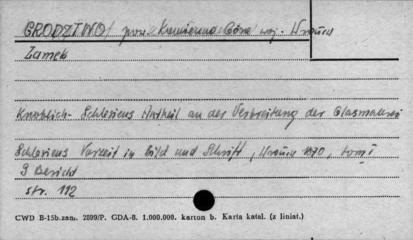 GRODZTWO / pow. Kamienna Góra / woj. Wrocław
Zamek
Knoblich - Schlesiens Antheil an der Verbreitung der Glasmalerei
Schlesiens Vorzeit in Bild und Schrift, 1870, tom I
9 Bericht
str. 112
CWD B-15b.zam. 2899/P. GDA-8. 1.000.000. karton b. Karta katal. (z liniat.)